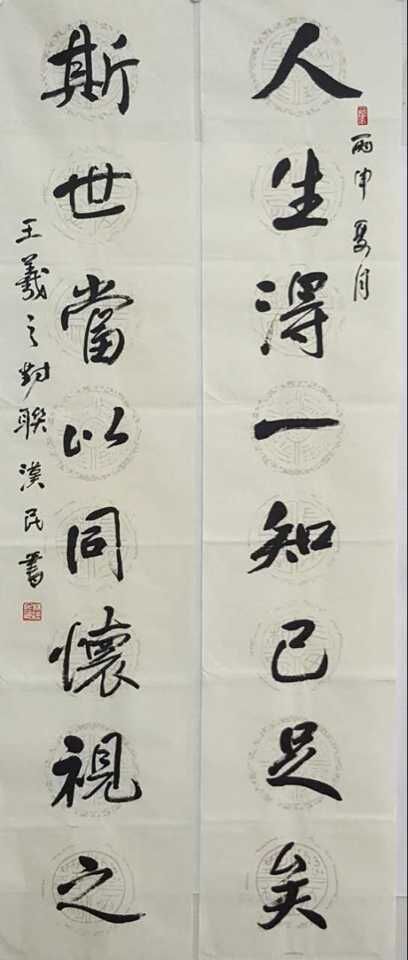 人生得一知己足矣
丙申夏月
斯世當以同懷視之
王羲之對聯漢民書